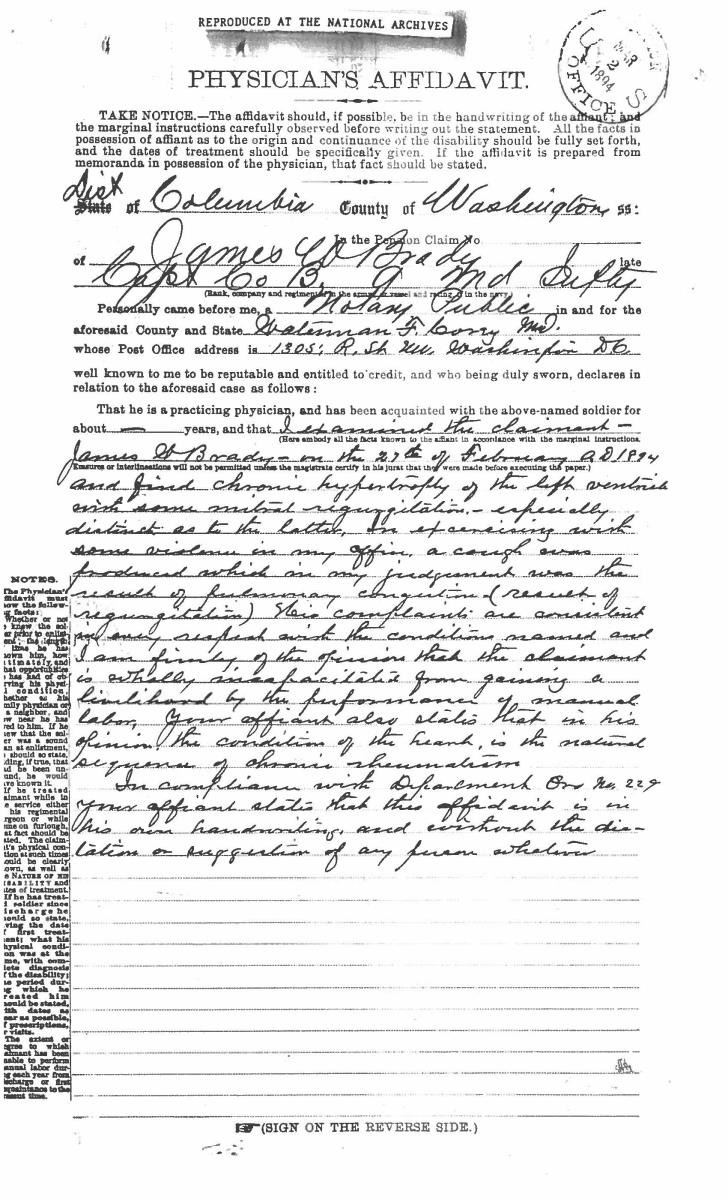 REPRODUCED AT THE NATIONAL ARCHIVES
MAR 2 1894
U S OFFICE
PHYSICIAN'S AFFIDAVIT.
TAKE NOTICE.—The affidavit should, if possible, be in the handwriting of the affiant; and
the marginal instructions carefully observed before writing out the statement. All the facts in
possession of affiant as to the origin and continuance of the disability should be fully set forth,
and the dates of treatment should be specifically given. If the affidavit is prepared from
memoranda in possession of the physician, that fact should be stated.
Dist
State of Columbia County of Washington, ss:
In the Pension Claim No
of James W Brady late
Capt Co B 9 Md Infty
(Rank, company and regiment if in the army or vessel and rating, if in the navy.)
Personally came before me, a Notary Public in and for the
aforesaid County and State Waterman F. Corey Md.
whose Post Office address is 1305, R. St NW. Washington DC.
well known to me to be reputable and entitled to credit, and who being duly sworn, declares in
relation to the aforesaid case as follows:
That he is a practicing physician, and has been acquainted with the above-named soldier for
about — years, and that I examined the claimant –
(Here embody all the facts known to the affiant in accordance with the marginal instructions.
James W Brady – on the 27th of February AD 1894
Erasures or interlineations will not be permitted unless the magistrate certify in his jurat that they were made before executing the paper.)
and find chronic hypertrophy of the left ventricle
with some mitral regurgitation, – especially
distinct as to the latter, On exercising with
some violence in my office, a cough was
produced which in my judgement was the
result of pulmonary congestion (result of
regurgitation) His complaints are consistent
in every respect with the conditions named and
I am firmly of the opinion that the claimant
is wholly incapacitated from gaining a
livlihood by the performance of manual
labor, Your affiant also states that in his
opinion, the condition of the heart, is the natural
sequence of chronic rheumatism
In compliance with Deparcment Or No. 229
Your affiant states that this affidavit is in
his own handwriting, and without the dic-
tation or suggestion of any person whatever
NOTES.
The Physician's
ffidavit must
ow the follow-
g facts:
Whether or not
knew the sol-
er prior to enlist-
ent; the length
time he has
own him, how
timately, and
hat opportunities
has had of ob-
rving his physi-
l condition,
hether as his
mily physician or
a neighbor, and
w near he has
red to him. If he
ew that the sol-
er was a sound
an at enlistment,
should so state,
ding, if true, that
d he been un-
und, he would
ve known it.
If he treated
aimant while in
e service either
his regimental
rgeon or while
me on furlough,
at fact should be
ated. The claim-
t's physical con-
tion at such times
ould be clearly
own, as well as
e NATURE OF HIS
ISABILITY and
tes of treatment.
If he has treat-
soldier since
ischarge he
ould so state,
ving the date
f first treat-
ent; what his
hysical condi-
on was at the
me, with com-
lete diagnosis
f the disability;
e period dur-
g which he
reated him
ould be stated,
ith dates as
ear as possible,
f prescriptions,
r visits.
The extent or
egree to which
aimant has been
nable to perform
anual labor dur-
g each year from
scharge or first
quaintance to the
resent time.
(SIGN ON THE REVERSE SIDE.)